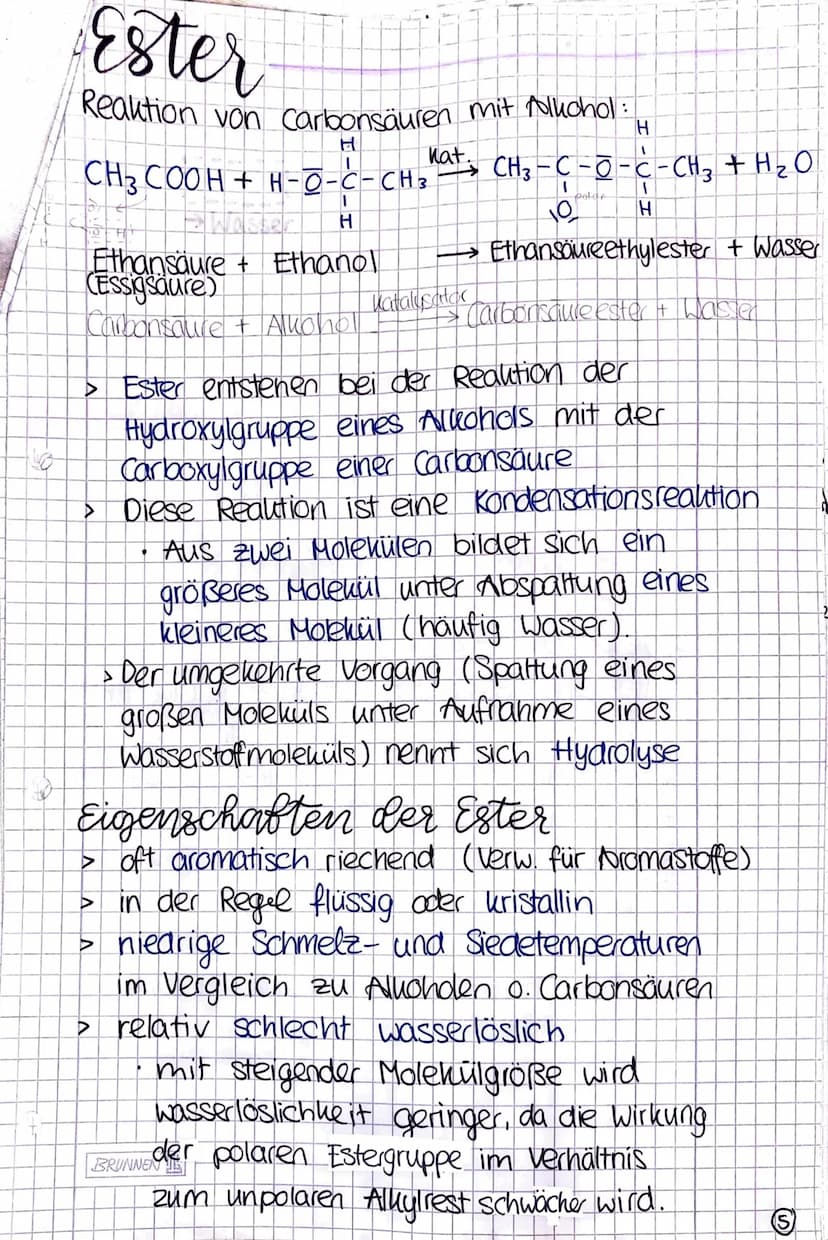 Ester
Reaktion von Carbonsäuren mit Alkohol:
H H
CH3COOH + H-O-C-CH3 Kat. → CH3-C-O-C-CH3 + H2O
H O polar H
→ Wasser
Ethansäure + Ethanol → Ethansäureethylester + Wasser
(Essigsäure)
Carbonsäure + Alkohol Katalysator → Carbonsäureester + Wasser
> Ester entstehen bei der Reaktion der
Hydroxylgruppe eines Alkohols mit der
Carboxylgruppe einer Carbonsäure
> Diese Reaktion ist eine Kondensationsreaktion
· Aus zwei Molekülen bildet sich ein
größeres Molekül unter Abspaltung eines
kleineres Molekül (häufig Wasser).
> Der umgekehrte Vorgang (Spaltung eines
großen Moleküls unter Aufnahme eines
Wasserstoffmoleküls) nennt sich Hydrolyse
Eigenschaften der Ester
> oft aromatisch riechend (Verw. für Aromastoffe)
> in der Regel flüssig oder kristallin
> niedrige Schmelz- und Siedetemperaturen
im Vergleich zu Alkoholen o. Carbonsäuren
> relativ schlecht wasserlöslich
· mit steigender Molekülgröße wird
wasserlöslichkeit geringer, da die Wirkung
der polaren Estergruppe im Verhältnis
zum unpolaren Alkylrest schwächer wird.
BRUNNEN
5